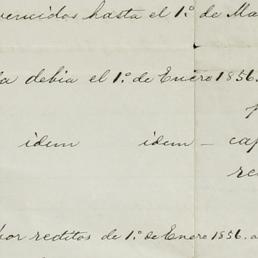 vencidos hasta el 1º de Ma
la debia el 1º de Enero 1856.
idem idem – cap
re
por reditos de 1º de Enero 1856. a